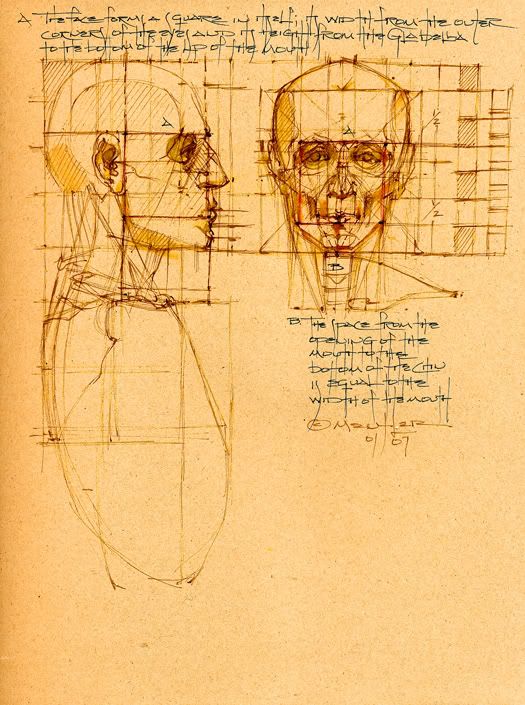 A THE FACE FORMS A SQUARE IN ITSELF; ITS WIDTH FROM THE OUTER
CORNERS OF THE EYES AND ITS HEIGHT FROM THE GLABELLA
TO THE BOTTOM OF THE LIP OF THE MOUTH
A
A
1/2
1/2
B
B THE SPACE FROM THE
OPENING OF THE
MOUTH TO THE
BOTTOM OF THE CHIN
IS EQUAL TO THE
WIDTH OF THE MOUTH
©
01 07